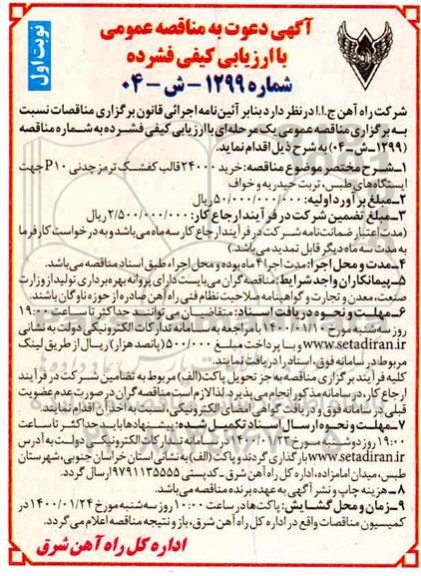 آگهی دعوت به مناقصه عمومی
با ارزیابی کیفی فشرده
شماره ۱۲۹۹-ش-۰۴
نوبت اول
شرکت راه آهن ج.ا.ا در نظر دارد بنابر آئین نامه اجرائی قانون برگزاری مناقصات نسبت
به برگزاری مناقصه عمومی یک مرحله ای با ارزیابی کیفی فشرده به شماره مناقصه
(۱۲۹۹-ش-۰۴) به شرح ذیل اقدام نماید.
۱-شرح مختصر موضوع مناقصه: خرید ۲۴۰۰۰ قالب کفشک ترمز چدنی P۱۰ جهت
ایستگاه های طبس، تربت حیدریه و خواف
۲-مبلغ برآورد اولیه: ۵۰/۰۰۰/۰۰۰/۰۰۰ ریال
۳-مبلغ تضمین شرکت در فرآیند ارجاع کار: ۲/۵۰۰/۰۰۰/۰۰۰ ریال
(مدت اعتبار ضمانت نامه شرکت در فرآیند ارجاع کار سه ماه می باشد و به درخواست کارفرما
به مدت سه ماه دیگر قابل تمدید می باشد.)
۴-مدت و محل اجرا: مدت اجرا ۴ ماه بوده و محل اجراء طبق اسناد مناقصه می باشد.
۵-پیمانکاران واجد شرایط: مناقصه گران می بایست دارای پروانه بهره برداری تولید از وزارت
صنعت، معدن و تجارت و گواهینامه صلاحیت نظام فنی راه آهن صادره از حوزه ناوگان باشند.
۶-مهلت و نحوه دریافت اسناد: متقاضیان می توانند حداکثر تا ساعت ۱۹:۰۰
روز سه شنبه مورخ ۱۴۰۰/۰۱/۱۰ با مراجعه به سامانه تدارکات الکترونیکی دولت به نشانی
www.setadiran.ir و با پرداخت مبلغ ۵۰۰/۰۰۰ (پانصد هزار) ریال از طریق لینک
مربوط در سامانه فوق، اسناد را دریافت نمایند.
کلیه فرآیند برگزاری مناقصه به جز تحویل پاکت (الف) مربوط به تضامین شرکت در فرآیند
ارجاع کار، در سامانه مذکور انجام می پذیرد. لذا لازم است مناقصه گران در صورت عدم عضویت
قبلی در سامانه فوق و دریافت گواهی امضای الکترونیکی، نسبت به أخذ آن اقدام نمایند.
۷-مهلت و نحوه ارسال اسناد تکمیل شده: پیشنهادها باید حداکثر تا ساعت
۱۹:۰۰ روز دوشنبه مورخ ۱۴۰۰/۰۱/۲۳ در سامانه تدارکات الکترونیکی دولت به آدرس
www.setadiran.ir بارگذاری گردند و پاکت (الف) به نشانی استان خراسان جنوبی، شهرستان
طبس، میدان امامزاده، اداره کل راه آهن شرق-کدپستی ۹۷۹۱۱۳۵۵۵۵ ارسال گردد.
۸-هزینه چاپ و نشر آگهی به عهده برنده مناقصه می باشد.
۹-زمان و محل گشایش: پاکت ها در ساعت ۱۰:۰۰ روز سه شنبه مورخ ۱۴۰۰/۰۱/۲۴ در
کمیسیون مناقصات واقع در اداره کل راه آهن شرق، باز و نتیجه مناقصه اعلام می گردد.
اداره کل راه آهن شرق